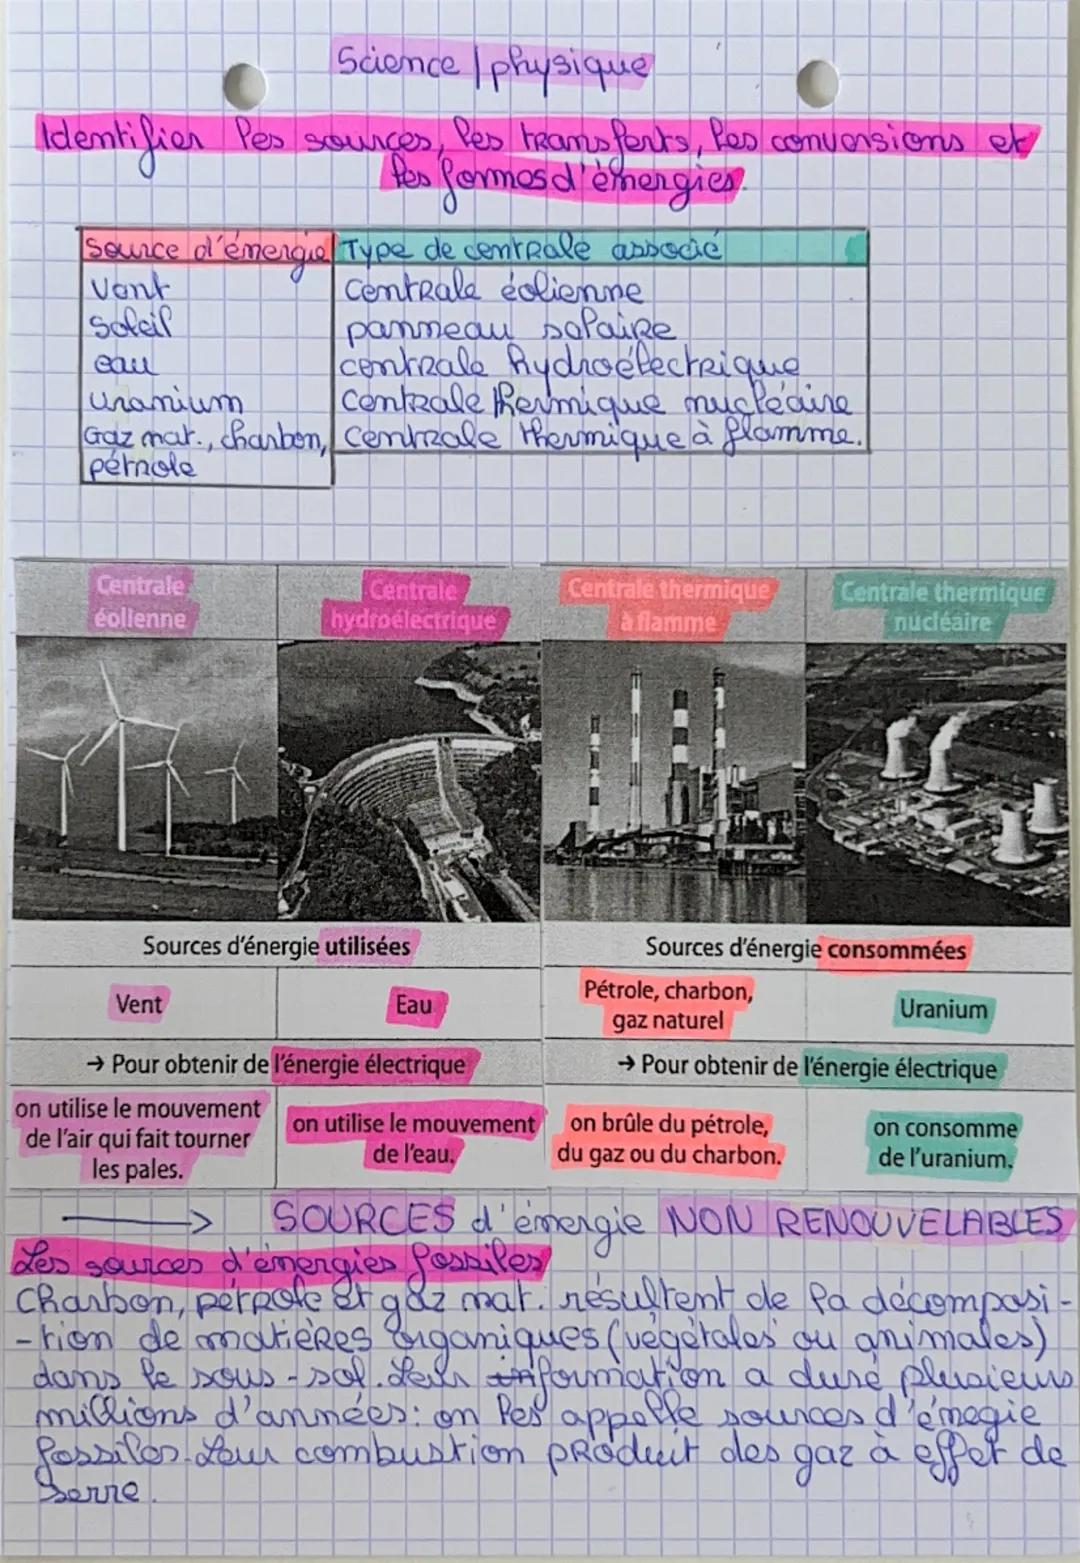 Science / physique
Identifier les sources, les transferts, les conversions et
les formes d'énergies.
Source d'énergie Type de centrale associé
Vent Centrale éolienne
Soleil panneau solaire
eau centrale hydroélectrique
Uranium Centrale thermique nucléaire
Gaz nat., charbon, Centrale thermique à flamme.
pétrole
Centrale éolienne
Centrale hydroélectrique
Centrale thermique à flamme
Centrale thermique nucléaire
Sources d'énergie utilisées
Sources d'énergie consommées
Vent
Eau
Pétrole, charbon,
gaz naturel
Uranium
→ Pour obtenir de l'énergie électrique
→ Pour obtenir de l'énergie électrique
on utilise le mouvement
de l'air qui fait tourner
les pales.
on utilise le mouvement
de l'eau.
on brûle du pétrole,
du gaz ou du charbon.
on consomme
de l'uranium.
→ SOURCES d'énergie NON RENOUVELABLES
Les sources d'énergies fossiles
Charbon, pétrole et gaz nat. résultent de la décomposi-
-tion de matières organiques (végétales ou animales)
dans le sous-sol. Leur formation a duré plusieurs
millions d'années: on les appelle sources d'énegie
fossiles. Leur combustion produit des gaz à effet de
serre.